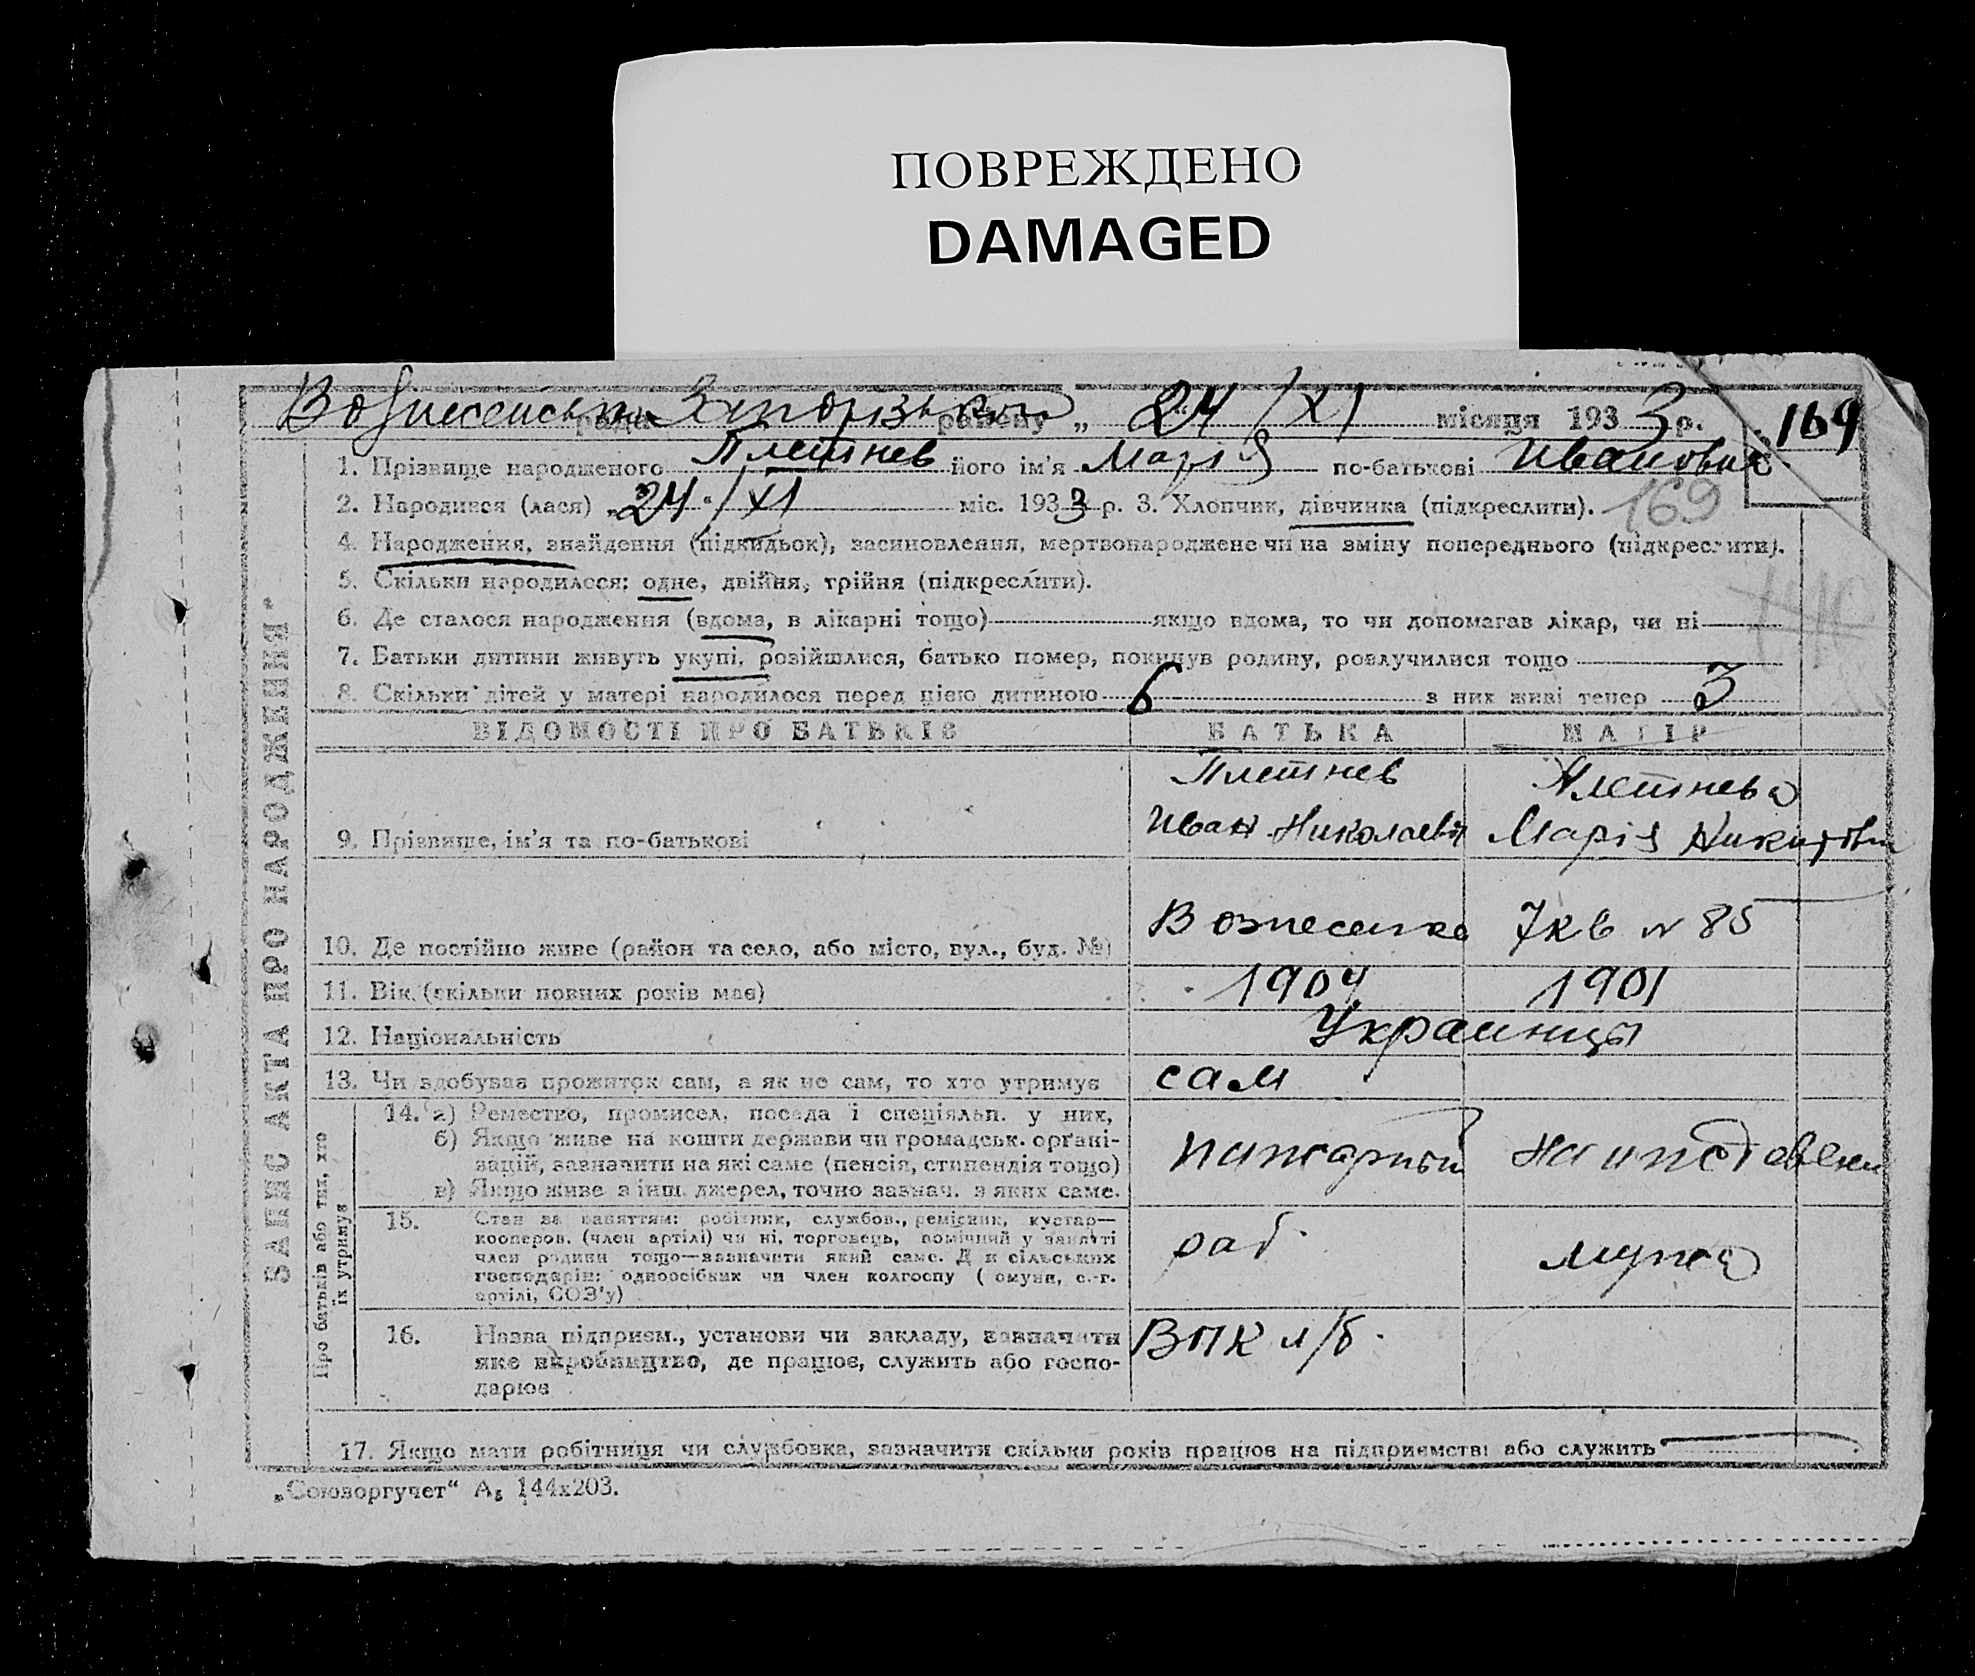 ПОВРЕЖДЕНО
DAMAGED
Вознесенська ради Запорізького району „ 24 /XI місяця 1933 р. № 169
1. Прізвище народженого Плетнев його ім'я Марія по-батькові Ивановна
2. Народився (лася) „24“ /XI міс. 1933 р. 3. Хлопчик, дівчинка (підкреслити). 169
4. Народження, знайдення (підкидьок), засиновлення, мертвонароджене чи на зміну попереднього (підкреслити).
5. Скільки народилося: одне, двійня, трійня (підкреслити).
6. Де сталося народження (вдома, в лікарні тощо) якщо вдома, то чи допомагав лікар, чи ні
7. Батьки дитини живуть укупі, розійшлися, батько помер, покинув родину, розлучилися тощо
8. Скільки дітей у матері народилося перед цією дитиною 6 з них живі тепер 3
ВІДОМОСТІ ПРО БАТЬКІВ БАТЬКА МАТІР
ЗАПИС АКТА ПРО НАРОДЖЕННЯ
Плетнев Плетнева
9. Прізвище, ім'я та по-батькові Иван Николаевич Марія Никитовн
10. Де постійно живе (район та село, або місто, вул., буд. №) Вознесенка 7 кв № 85
11. Вік (скільки повних років має) 1904 1901
12. Національність Украинцы
13. Чи здобував прожиток сам, а як не сам, то хто утримує сам
Про батьків або тих, хто їх утримує
14. а) Ремество, промисел, посада і спеціяльн. у них,
б) Якщо живе на кошти держави чи громадськ. органі-
зацій, зазначити на які саме (пенсія, стипендія тощо) пожарный На иждевени
в) Якщо живе з інш. джерел, точно зазнач. з яких саме.
15. Стан за заняттям: робітник, службов., ремісник, кустар—
кооперов. (член артілі) чи ні, торговець, помічний у занятті
член родини тощо—зазначити який саме. Для сільських раб. мужа
господарів: одноосібник чи член колгоспу (комуни, с.-г.
артілі, СОЗ'у)
16. Назва підприєм., установи чи закладу, зазначити ВПК л/б.
яке виробництво, де працює, служить або госпо-
дарює
17. Якщо мати робітниця чи службовка, зазначити скільки років працює на підприємстві або служить
„Союзоргучет“ А5 144х203.